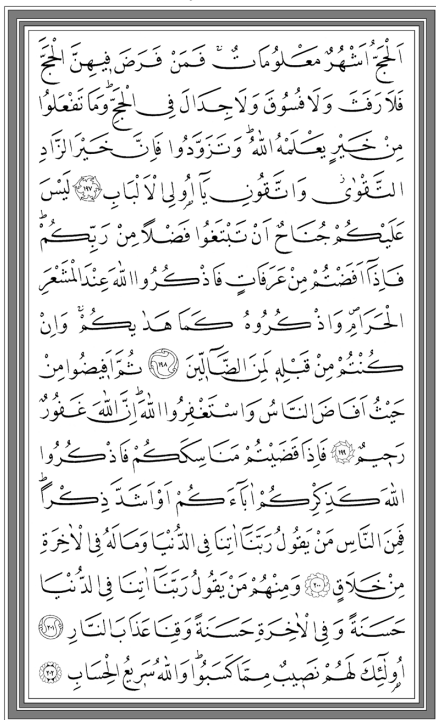 اَلْحَجُّ اَشْهُرٌ مَعْلُومَاتٌۚ فَمَنْ فَرَضَ فٖيهِنَّ الْحَجَّ
فَلَا رَفَثَ وَلَا فُسُوقَ وَلَا جِدَالَ فِى الْحَجِّؕ وَمَا تَفْعَلُوا
مِنْ خَيْرٍ يَعْلَمْهُ اللّٰهُؕ وَتَزَوَّدُوا فَاِنَّ خَيْرَ الزَّادِ
التَّقْوٰىؗ وَاتَّقُونِ يَٓا اُو۬لِى الْاَلْبَابِ ﴿١٩٧﴾ لَيْسَ
عَلَيْكُمْ جُنَاحٌ اَنْ تَبْتَغُوا فَضْلًا مِنْ رَبِّكُمْؕ
فَاِذَٓا اَفَضْتُمْ مِنْ عَرَفَاتٍ فَاذْكُرُوا اللّٰهَ عِنْدَ الْمَشْعَرِ
الْحَرَامِࣕ وَاذْكُرُوهُ كَمَا هَدٰيكُمْۚ وَاِنْ
كُنْتُمْ مِنْ قَبْلِهٖ لَمِنَ الضَّٓالّٖينَ ﴿١٩٨﴾ ثُمَّ اَفٖيضُوا مِنْ
حَيْثُ اَفَاضَ النَّاسُ وَاسْتَغْفِرُوا اللّٰهَؕ اِنَّ اللّٰهَ غَفُورٌ
رَحٖيمٌ ﴿١٩٩﴾ فَاِذَا قَضَيْتُمْ مَنَاسِكَكُمْ فَاذْكُرُوا
اللّٰهَ كَذِكْرِكُمْ اٰبَٓاءَكُمْ اَوْ اَشَدَّ ذِكْرًاؕ
فَمِنَ النَّاسِ مَنْ يَقُولُ رَبَّنَٓا اٰتِنَا فِى الدُّنْيَا وَمَا لَهُ فِى الْاٰخِرَةِ
مِنْ خَلَاقٍ ﴿٢٠٠﴾ وَمِنْهُمْ مَنْ يَقُولُ رَبَّنَٓا اٰتِنَا فِى الدُّنْيَا
حَسَنَةً وَفِى الْاٰخِرَةِ حَسَنَةً وَقِنَا عَذَابَ النَّارِ ﴿٢٠١﴾
اُو۬لٰٓئِكَ لَهُمْ نَصٖيبٌ مِمَّا كَسَبُواؕ وَاللّٰهُ سَرٖيعُ الْحِسَابِ ﴿٢٠٢﴾